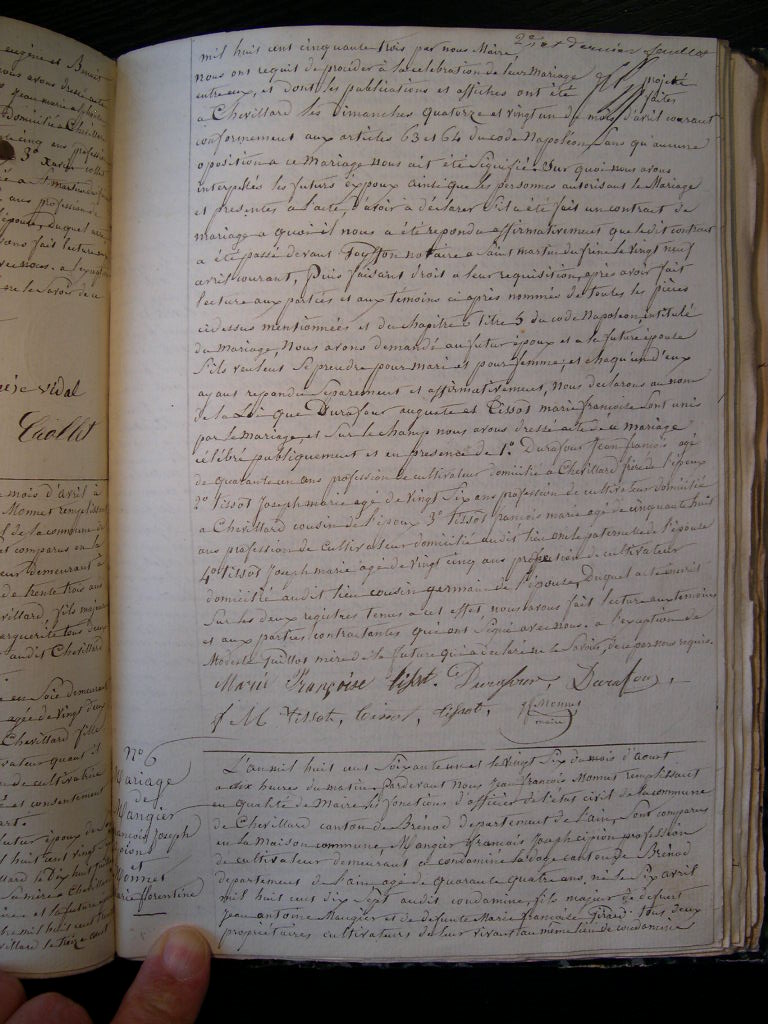 2e et dernier feuillet
mil huit cent cinquante trois par nous Maire
nous ont requit de procéder à la célébration de leur Mariage projeté
entre eux, et dont les publications et affiches ont été faites
a Chevillard les Dimanches Quatorze et vingt un du mois d'avril courant
conformement aux articles 63 et 64 du code Napoléon, sans qu'aucune
opposition a ce Mariage nous ait été signifiée. Sur quoi nous avons
interpellé les futurs époux ainsi que les personnes autorisant le Mariage
et presentes a l'acte, d'avoir à déclarer s'il a été fait un contrat de
mariage a quoi il nous a été repondu affirmativement que ledit contrat
a été passé devant notaire a Saint martin du frêne le vingt neuf
avril courant, Puis faisant droit a leur requisition, apres avoir fait
lecture aux parties et aux temoins ci après nommés de toutes les pièces
ci dessus mentionnées et du chapitre 6 titre 5 du code Napoleon, intitulé
du Mariage, Nous avons demandé au futur époux et a la future épouse
s'ils veulent se prendre pour mari et pour femme, et chaqu'un d'eux
ayant repondu séparement et affirmativement, Nous declarons au nom
de la Loi que Durafour auguste et Tissot marie françoise sont unis
par le mariage, et sur le champ nous avons dressé acte de ce mariage
célébré publiquement et en presence de 1° Durafour Jean françois agé
de quarante un ans profession de cultivateur domicilié a Chevillard frère de l'époux
2° tissot Joseph marie agé de vingt six ans profession de cultivateur domicilié
a Chevillard cousin de l'époux 3° tissot francois marie agé de cinquante huit
ans profession de Cultivateur domicilié audit lieu oncle paternel de l'épouse
4° tissot Joseph marie agé de vingt cinq ans profession de cultivateur
domicilié audit lieu cousin germain de l'épouse, Duquel acte inscrit
sur les deux registres tenus a cet effet, nous avons fait lecture aux temoins
et aux parties contractantes qui ont signé avec nous. a l'exception de
Modeste Guillot mère de la future qui a déclaré ne le Savoir, de ce par nous requis.
Marie Françoise tissot. Durafour, Durafour,
f M Tissot, tissot, tissot, Monnet
maire
N° 6
Mariage
de
Mangier
françois Joseph
cipion
et
Monnet
Marie florentine
L'an mil huit cent soixante un et le vingt six du mois d'aout
a dix heures du matin, Pardevant Nous Jean françois Monnet remplissant
en qualité de Maire, les fonctions d'officier de l'état civil de la commune
de Chevillard canton de Brénod departement de l'ain, sont comparus
en la Maison commune, Mangier français Joseph cipion profession
de cultivateur demeurant a condamine la doye canton de Brénod
departement de l'ain agé de quarante quatre ans. né le six avril
mil huit cent dix sept audit condamine, fils majeur de defunt
Jean antoine Maugier et de defunte Marie françoise Girard. tous deux
propriétaires cultivateurs de leur vivant au même lieu de condamine
eugène et Benoit
nous avons dressé acte
Jean marie
domicilié a Chevillard
cinq ans profession
3° Xavier
a St martin du
ans profession de
épouse, duquel
avons fait lecture
avec nous. a l'exception
ne le Savoir de ce
Vidal
mois d'avril à
Monnet remplissant
de la commune de
et comparus en la
demeurant à
de trente trois ans
Chevillard, fils majeur
marguerite tous deux
audit Chevillard
agée de vingt deux
Chevillard fille